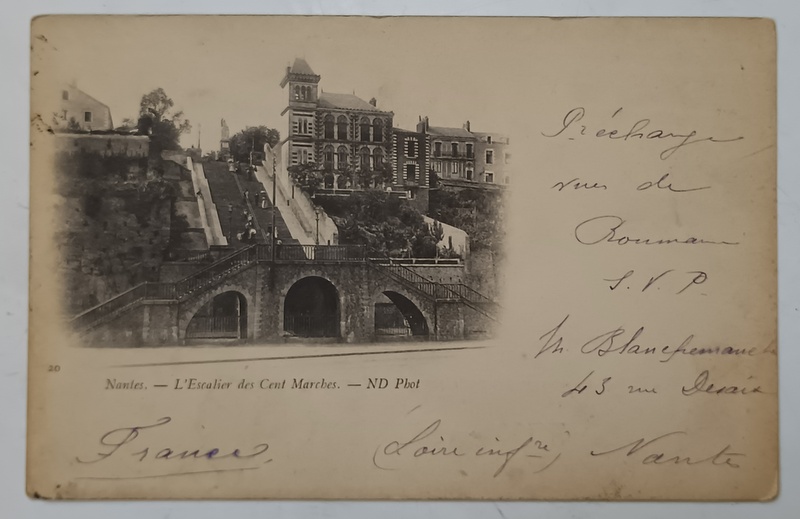 Préchange
vues de
Roumanie
S.V.P.
M. Blanchemanche
43 rue Desaix
20
Nantes. — L'Escalier des Cent Marches. — ND Phot
France
(Loire infre) Nantes